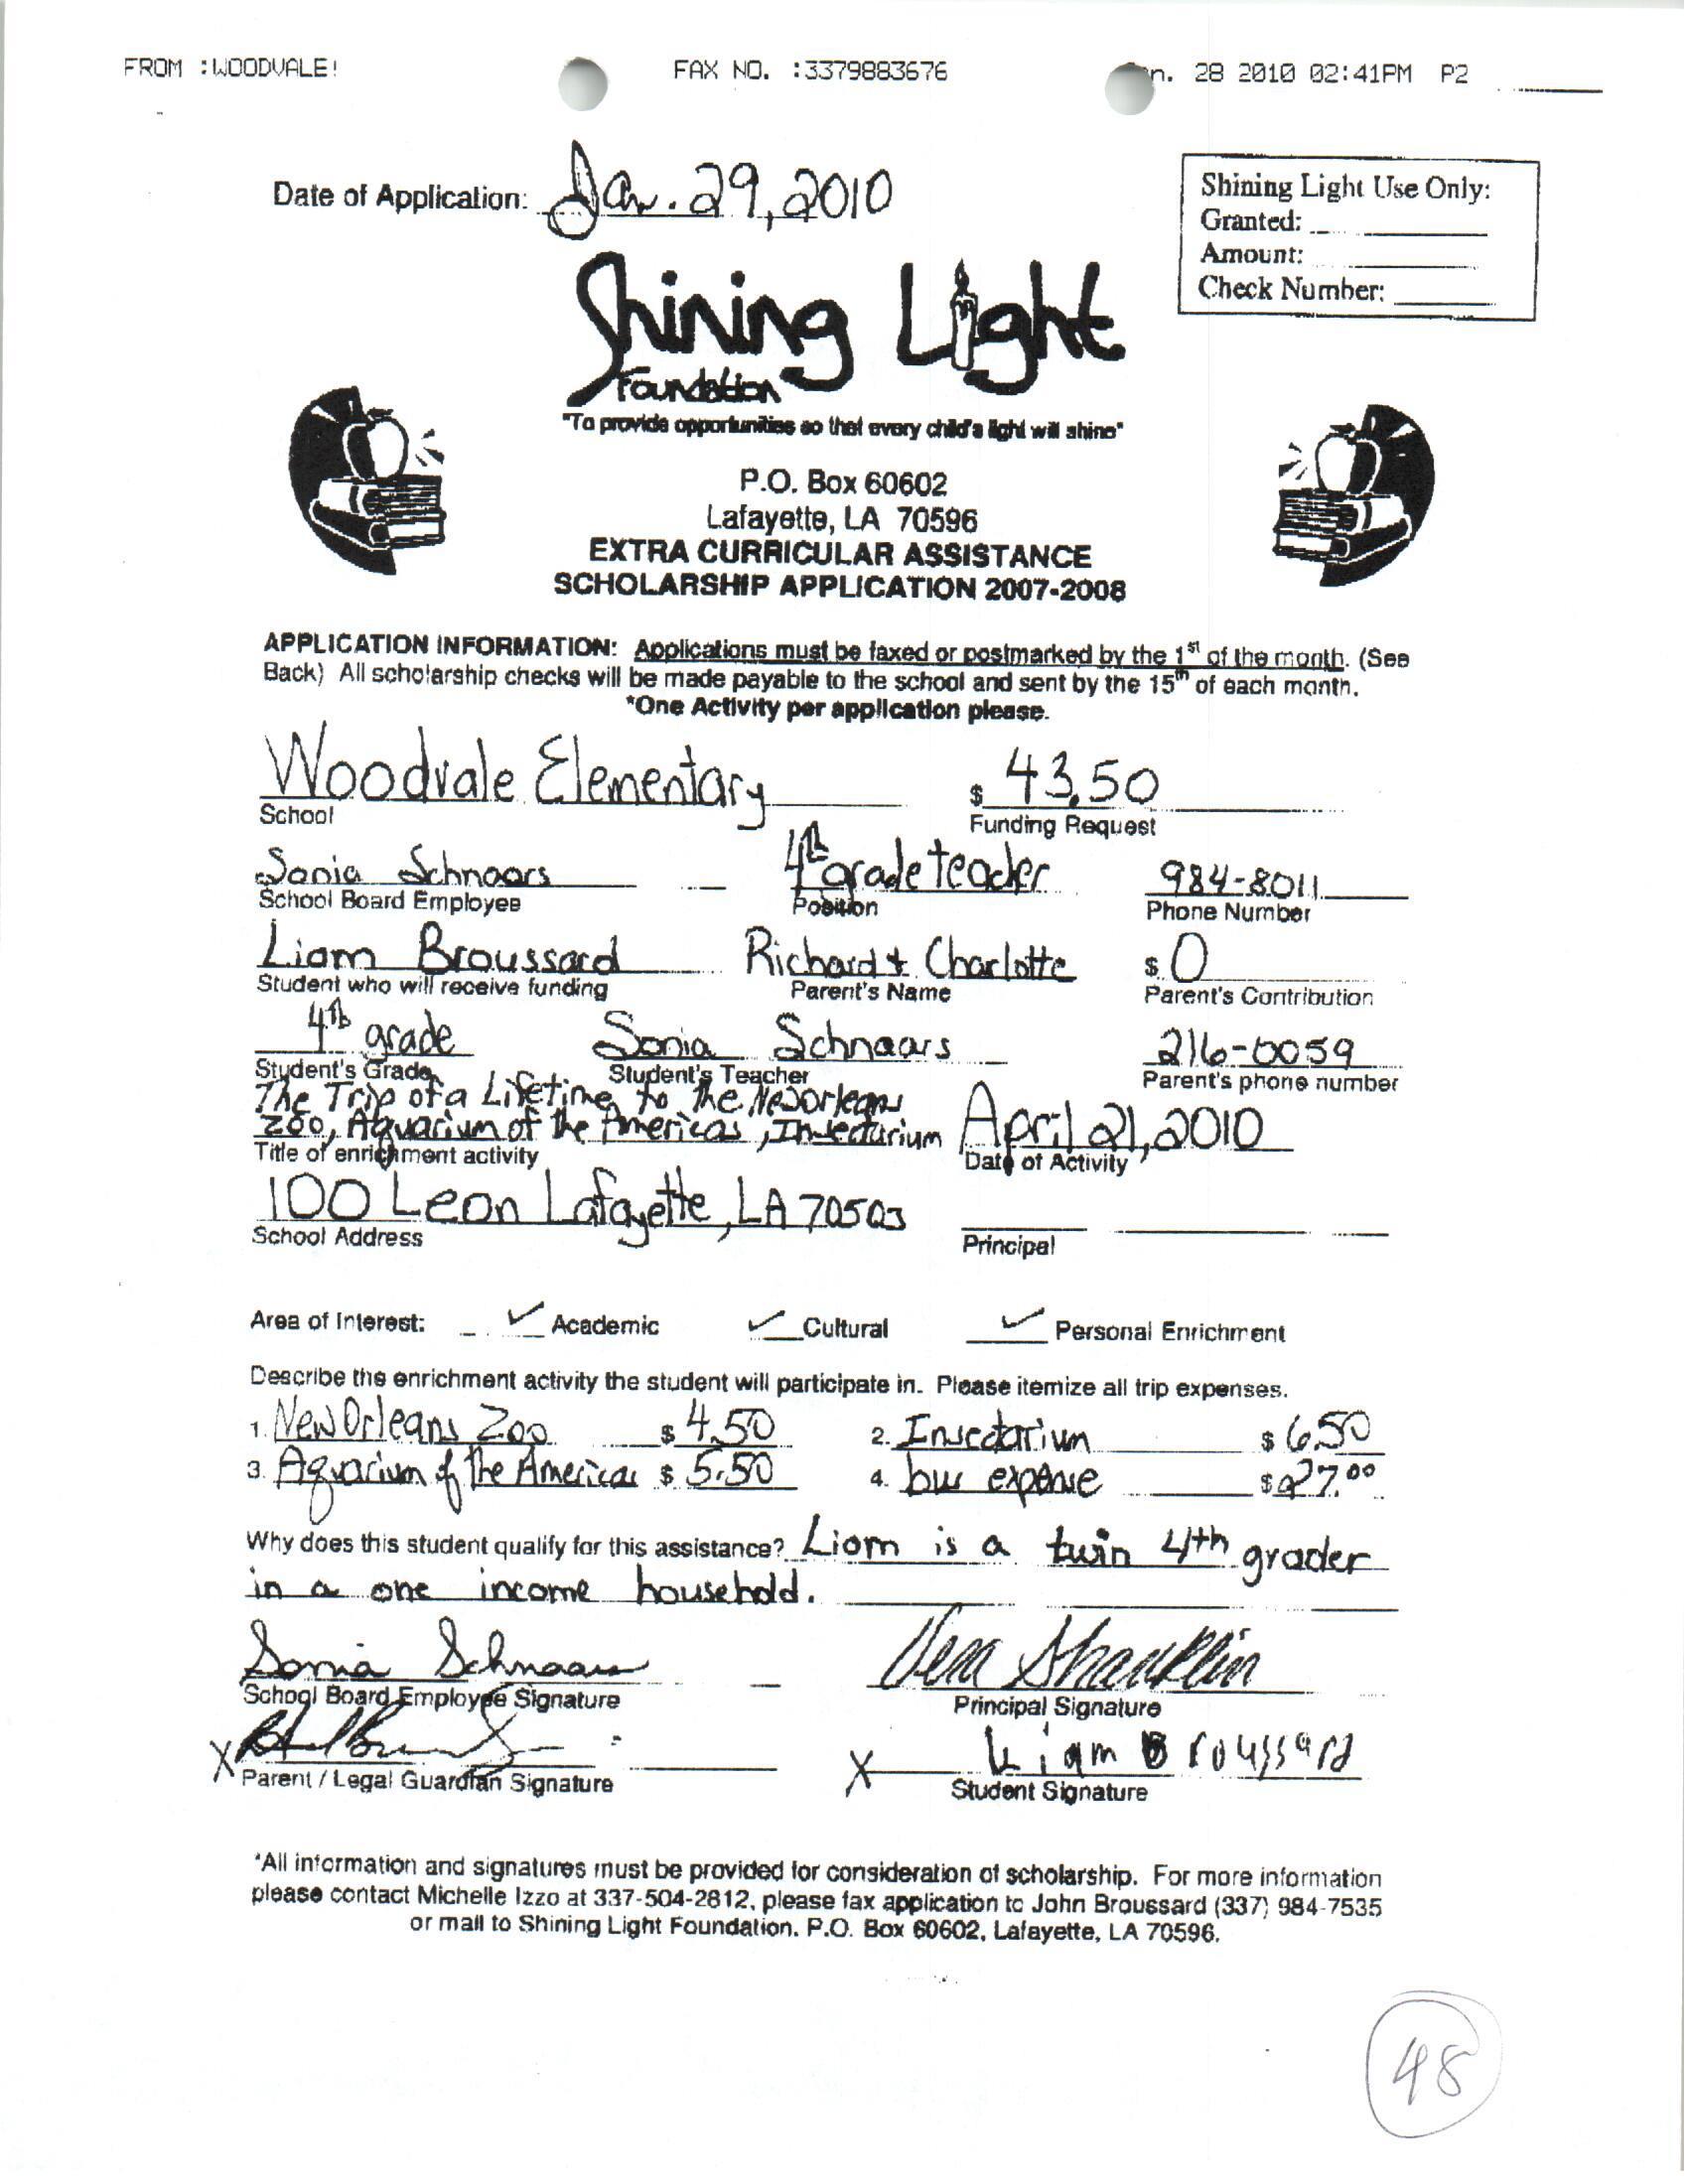 FROM :WOODVALE! FAX NO. :3379883676 n. 28 2010 02:41PM P2
Date of Application: Jan. 29, 2010
Shining Light Use Only:
Granted:
Amount:
Check Number:
Shining Light
Foundation
"To provide opportunities so that every child's light will shine"
P.O. Box 60602
Lafayette, LA 70596
EXTRA CURRICULAR ASSISTANCE
SCHOLARSHIP APPLICATION 2007-2008
APPLICATION INFORMATION: Applications must be faxed or postmarked by the 1st of the month. (See
Back) All scholarship checks will be made payable to the school and sent by the 15th of each month.
*One Activity per application please.
Woodvale Elementary $ 43.50
School Funding Request
Sonia Schnaars 4th grade teacher 984-8011
School Board Employee Position Phone Number
Liam Broussard Richard & Charlotte $ 0
Student who will receive funding Parent's Name Parent's Contribution
4th grade Sonia Schnaars 216-0059
Student's Grade Student's Teacher Parent's phone number
The Trip of a Lifetime to the New Orleans
Zoo, Aquarium of the Americas, Insectarium April 21, 2010
Title of enrichment activity Date of Activity
100 Leon Lafayette, LA 70503
School Address Principal
Area of Interest: ✓ Academic ✓ Cultural ✓ Personal Enrichment
Describe the enrichment activity the student will participate in. Please itemize all trip expenses.
1. New Orleans Zoo $ 4.50 2. Insectarium $ 6.50
3. Aquarium of the Americas $ 5.50 4. bus expense $ 27.00
Why does this student qualify for this assistance? Liam is a twin 4th grader
in a one income household.
Sonia Schnaars Vera Shanklin
School Board Employee Signature Principal Signature
X X Liam Broussard
Parent / Legal Guardian Signature Student Signature
*All information and signatures must be provided for consideration of scholarship. For more information
please contact Michelle Izzo at 337-504-2812, please fax application to John Broussard (337) 984-7535
or mail to Shining Light Foundation, P.O. Box 60602, Lafayette, LA 70596.
48